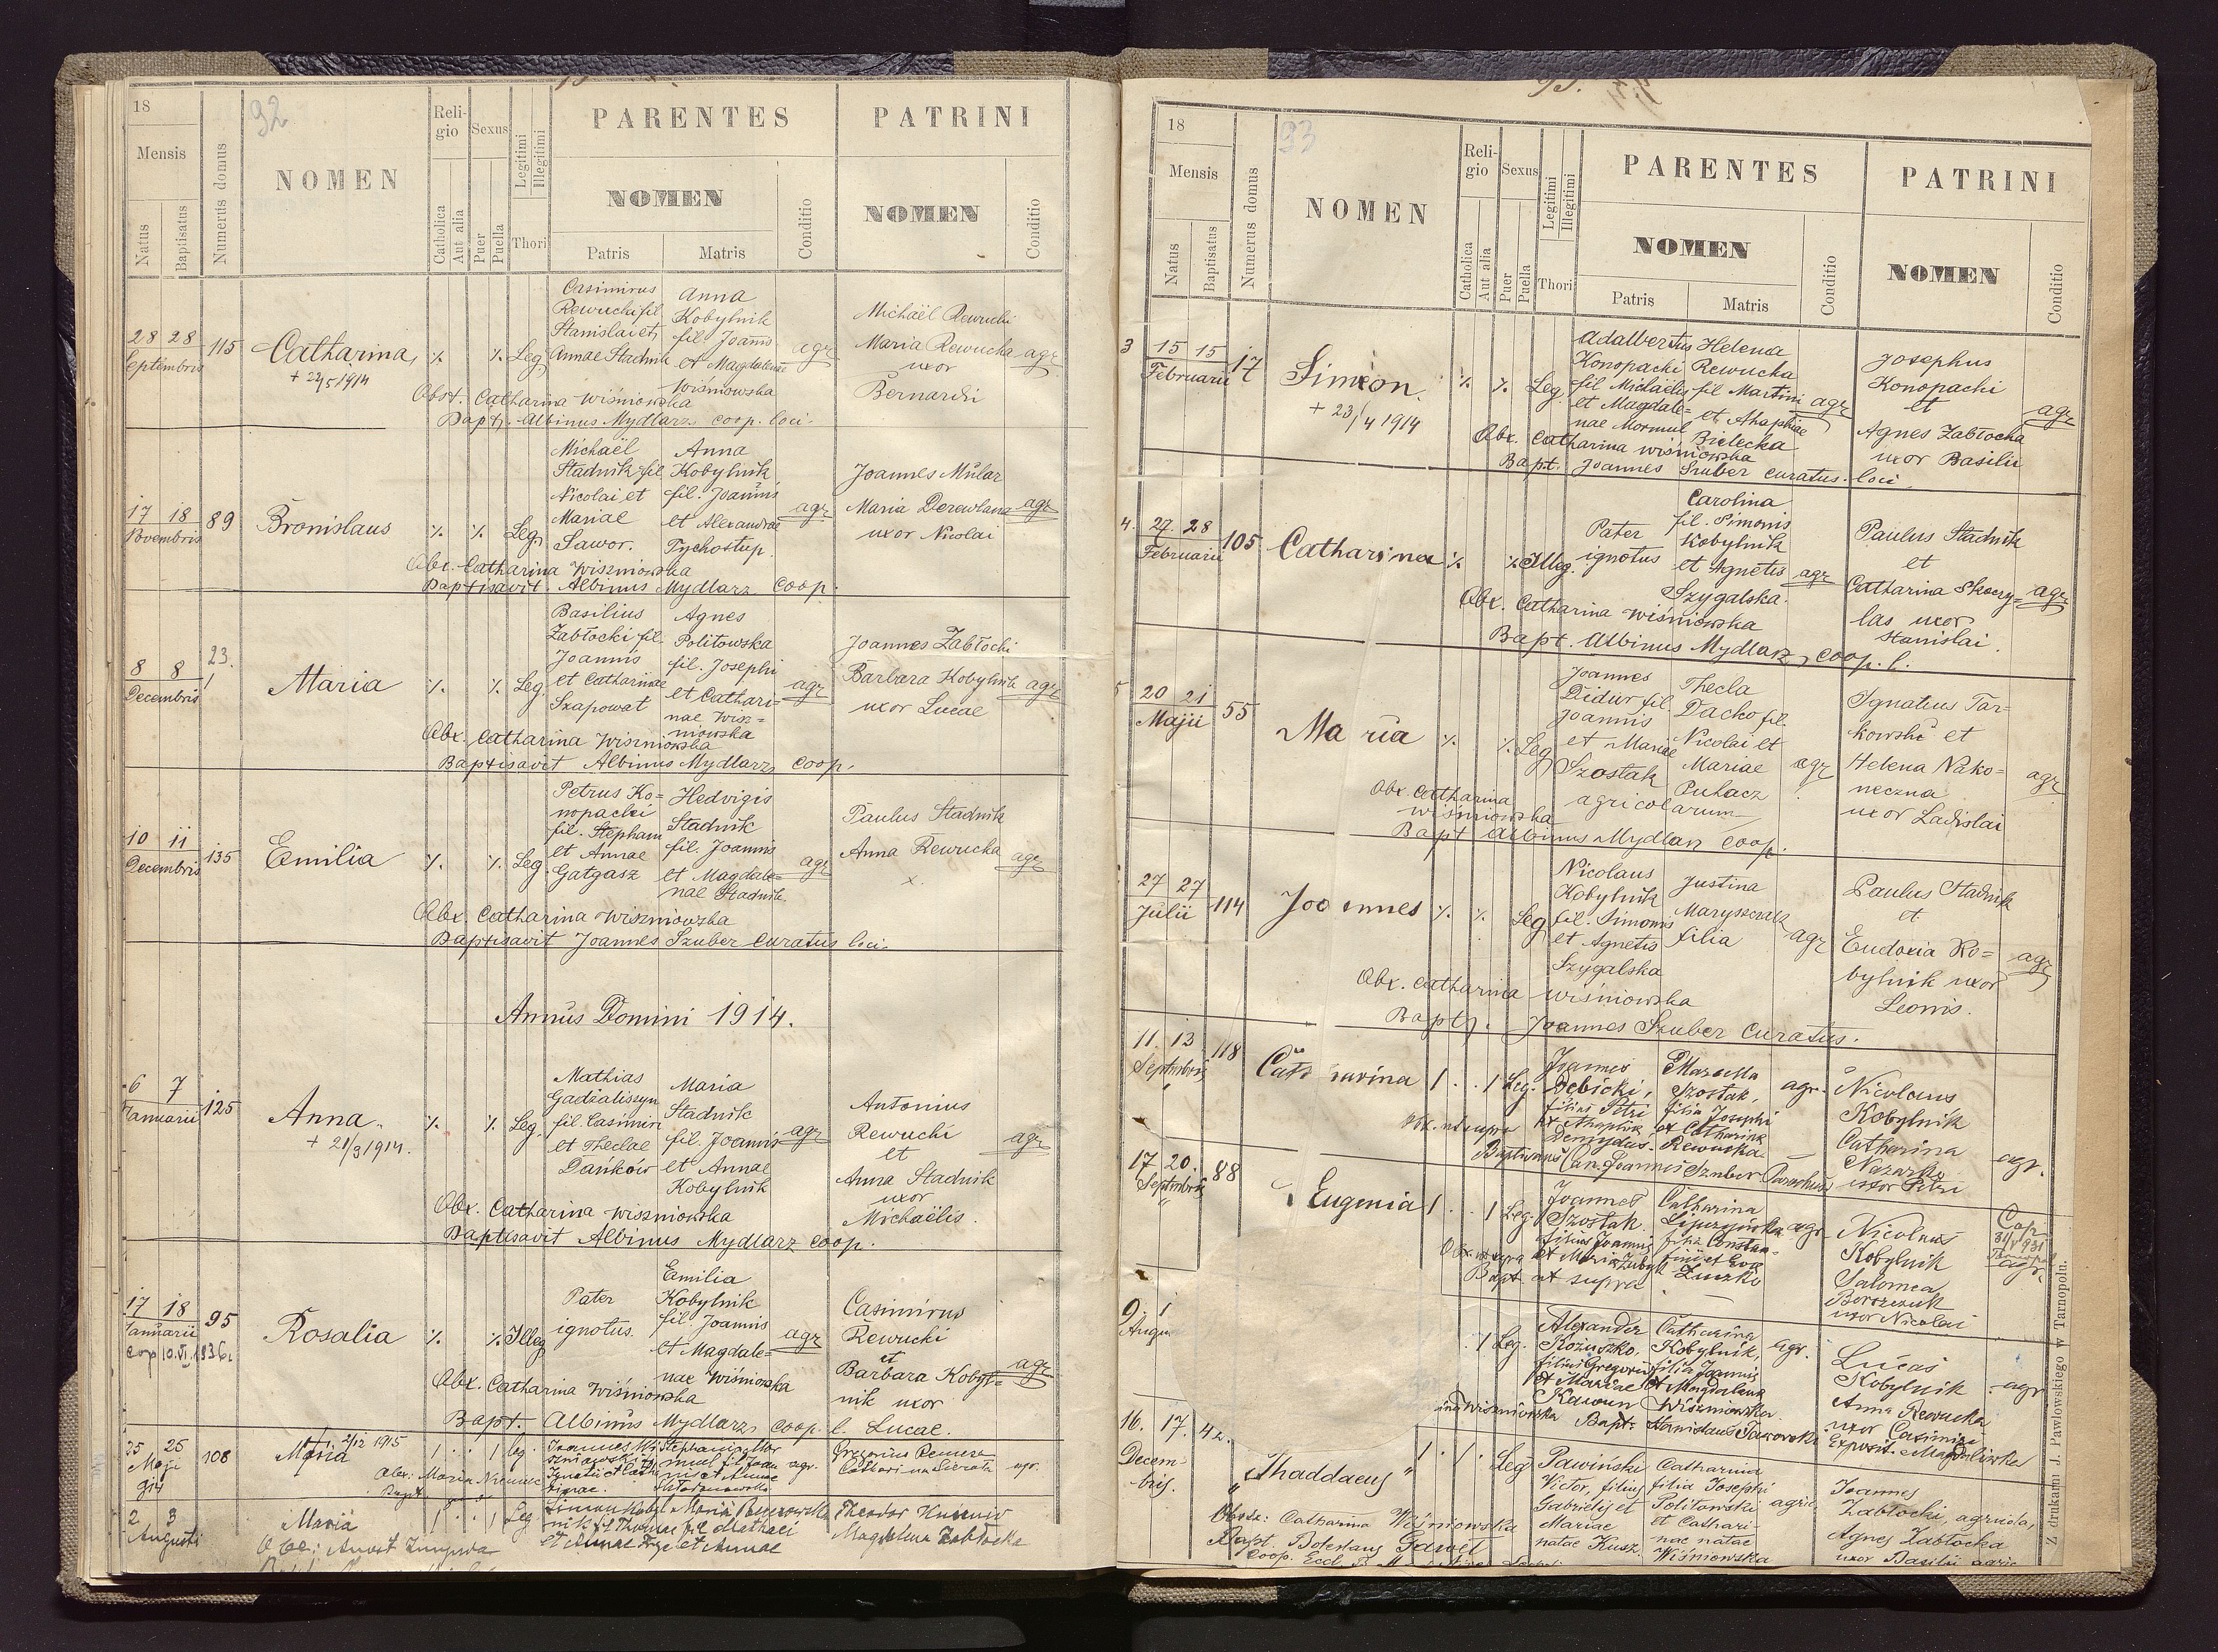 92
18
Mensis
Natus
Baptisatus
Numerus domus
NOMEN
Religio
Catholica
Aut alia
Sexus
Puer
Puella
Legitimi
Illegitimi
Thori
PARENTES
NOMEN
Patris
Matris
Conditio
PATRINI
NOMEN
Conditio
28 28
Septembris
115
Catharina
+ 22/5 1914
% % Leg
Casimirus
Rewucki fil
Stanislai et
Annae Stadnik
Anna
Kobylnik
fil Joannis
et Magdalenae
Wiśniowska
agr
Michaël Rewucki
Maria Rewucka
uxor
Bernardi
agr
Obst. Catharina Wiśniowska
Bapt. Albinus Mydlarz coop. loci.
17 18
Novembris
89
Bronislaus
% % Leg
Michaël
Stadnik fil
Nicolai et
Mariae
Sawor.
Anna
Kobylnik
fil. Joannis
et Alexandrae
Tychostup.
agr
Joannes Mular
Maria Derewlana
uxor Nicolai
agr
Obx. Catharina Wiszniowska
Baptisavit Albinus Mydlarz coop.
8 8
Decembris
23.
1
Maria
% % Leg
Basilius
Zabłocki fil.
Joannis
et Catharinae
Szapowat
Agnes
Politowska
fil. Josephi
et Cathari-
nae Wisz=
niowska
agr
Joannes Zabłocki
Barbara Kobylnik
uxor Lucae
agr
Obx. Catharina Wiszniowska
Baptisavit Albinus Mydlarz coop.
10 11
Decembris
135
Emilia
% % Leg
Petrus Ko=
nopacki
fil. Stephani
et Annae
Gatgasz
Hedvigis
Stadnik
fil. Joannis
et Magdale=
nae Stadnik
agr
Paulus Stadnik
Anna Rewucka
x.
agr
Obx. Catharina Wiszniowska
Baptisavit Joannes Szuber curatus loci.
Annus Domini 1914.
6 7
Januarii
125
Anna
+ 21/3 1914.
% % Leg
Mathias
Gadzaliszyn
fil. Casimiri
et Theclae
Dańków
Maria
Stadnik
fil. Joannis
et Annae
Kobylnik
agr
Antonius
Rewucki
et
Anna Stadnik
uxor
Michaëlis.
agr
Obx. Catharina Wiszniowska
Baptisavit Albinus Mydlarz coop.
17 18
Januarii
cop 10.VI.1936
95
Rosalia
% % Illeg
Pater
ignotus.
Emilia
Kobylnik
fil. Joannis
et Magdale=
nae Wiśniowska
agr
Casimirus
Rewucki
et
Barbara Kobyl=
nik uxor
Lucae.
agr
Obx. Catharina Wiśniowska
Bapt. Albinus Mydlarz coop. l.
25 25
Maji
914
108
Maria
2/12 1915
1 1 leg.
Stephania
agr.
Gregorius
Catharina
agr.
Obx: Maria Niemiec
Bapt
2 3
Augusti
Maria
1 1 Leg
Simon Kobyl-
nik fil Thomae
et Annae
Maria
fil Mathaei
et Annae
Theodor
Magdalena Zabłocka
93
18
Mensis
Natus
Baptisatus
Numerus domus
NOMEN
Religio
Catholica
Aut alia
Sexus
Puer
Puella
Legitimi
Illegitimi
Thori
PARENTES
NOMEN
Patris
Matris
Conditio
PATRINI
NOMEN
Conditio
3
15 15
Februarii
17
Simeon.
+ 23/4 1914
% % Leg
Adalbertus
Konopacki
fil Michaëlis
et Magdale=
nae Mormul
Helena
Rewucka
fil Martini
et Ahaphiae
Bielecka
agr
Josephus
Konopacki
et
Agnes Zabłocka
uxor Basilii
agr
Obx. Catharina Wiśniowska
Bapt. Joannes Szuber curatus loci
4.
27. 28
Februarii
105
Catharina
% % Illeg.
Pater
ignotus
Carolina
fil. Simonis
Kobylnik
et Agnetis
Szygalska.
agr
Paulus Stadnik
et
Catharina Skoczy=
las uxor
Stanislai.
agr
Obx. Catharina Wiśniowska
Bapt. Albinus Mydlarz, coop. l.
5
20 21
Maji
55
Maria
% % Leg
Joannes
Didur fil.
Joannis
et Mariae
Szostak
agricolarum
Thecla
Dacko fil.
Nicolai et
Mariae
Puhacz
agr
Ignatius Tar-
kowski et
Helena Nako=
neczna
uxor Ladislai
agr
Obx. Catharina
Wiśniowska
Bapt Albinus Mydlarz coop.
27 27
Julii
114
Joannes
% % Leg
Nicolaus
Kobylnik
fil. Simonis
et Agnetis
Szygalska
Justina
Maryszczak
filia
agr
Paulus Stadnik
et
Eudoxia Ko=
bylnik uxor
Leonis.
agr
Obx. Catharina Wiśniowska
Bapt. Joannes Szuber curatus.
11. 13
Septembris
118
Catharina
1 . . 1 Leg.
Joannes
Dębicki,
filius Petri
et Ahaphiae
Demydas.
Marcella
Szostak,
filia Josephi
et Catharinae
Rewucka
agr.
Nicolaus
Kobylnik
Catharina
Nazarko
uxor Petri
agr.
Obx. ut supra
Baptisavit Can. Joannes Szuber Parochus
17 20.
Septembris
88
Eugenia
1 . . 1 Leg.
Joannes
Szostak
filius Joannis
et Mariae
Catharina
filia Constan-
tini et Evae
Luszko
agr.
Nicolaus
Kobylnik
Salomea
Borszczuk
uxor Nicolai
Cop
agr.
Obx. ut supra
Bapt. ut supra
9 1
Augu
. 1 Leg.
Alexander
Kożuszko,
filius Gregorii
et Mariae
Kawun
Catharina
Kobylnik,
filia Joannis
et Magdalena
Wiszniowska.
agr.
Lucas
Kobylnik
Anna Rewucka
uxor Casimiri
agr
ina Wiszniowska
Bapt. Stanislaus Exposit. e
16. 17.
Decem-
bris.
42.
Thaddaeus
1. 1. Leg
Pawiński
Victor, filius
Gabrielis et
Mariae
natae Kusz.
Catharina
filia Josephi
Politowski
et Cathari-
nae natae
Wiśniowska
agric
Joannes
Zabłocki, agricola,
Agnes Zabłocka
uxor Basilii agric
Obstx: Catharina Wiśniowska
Bapt. Boleslaus Gawet
Coop.
Z drukarni J. Pawłowskiego w Tarnopolu.